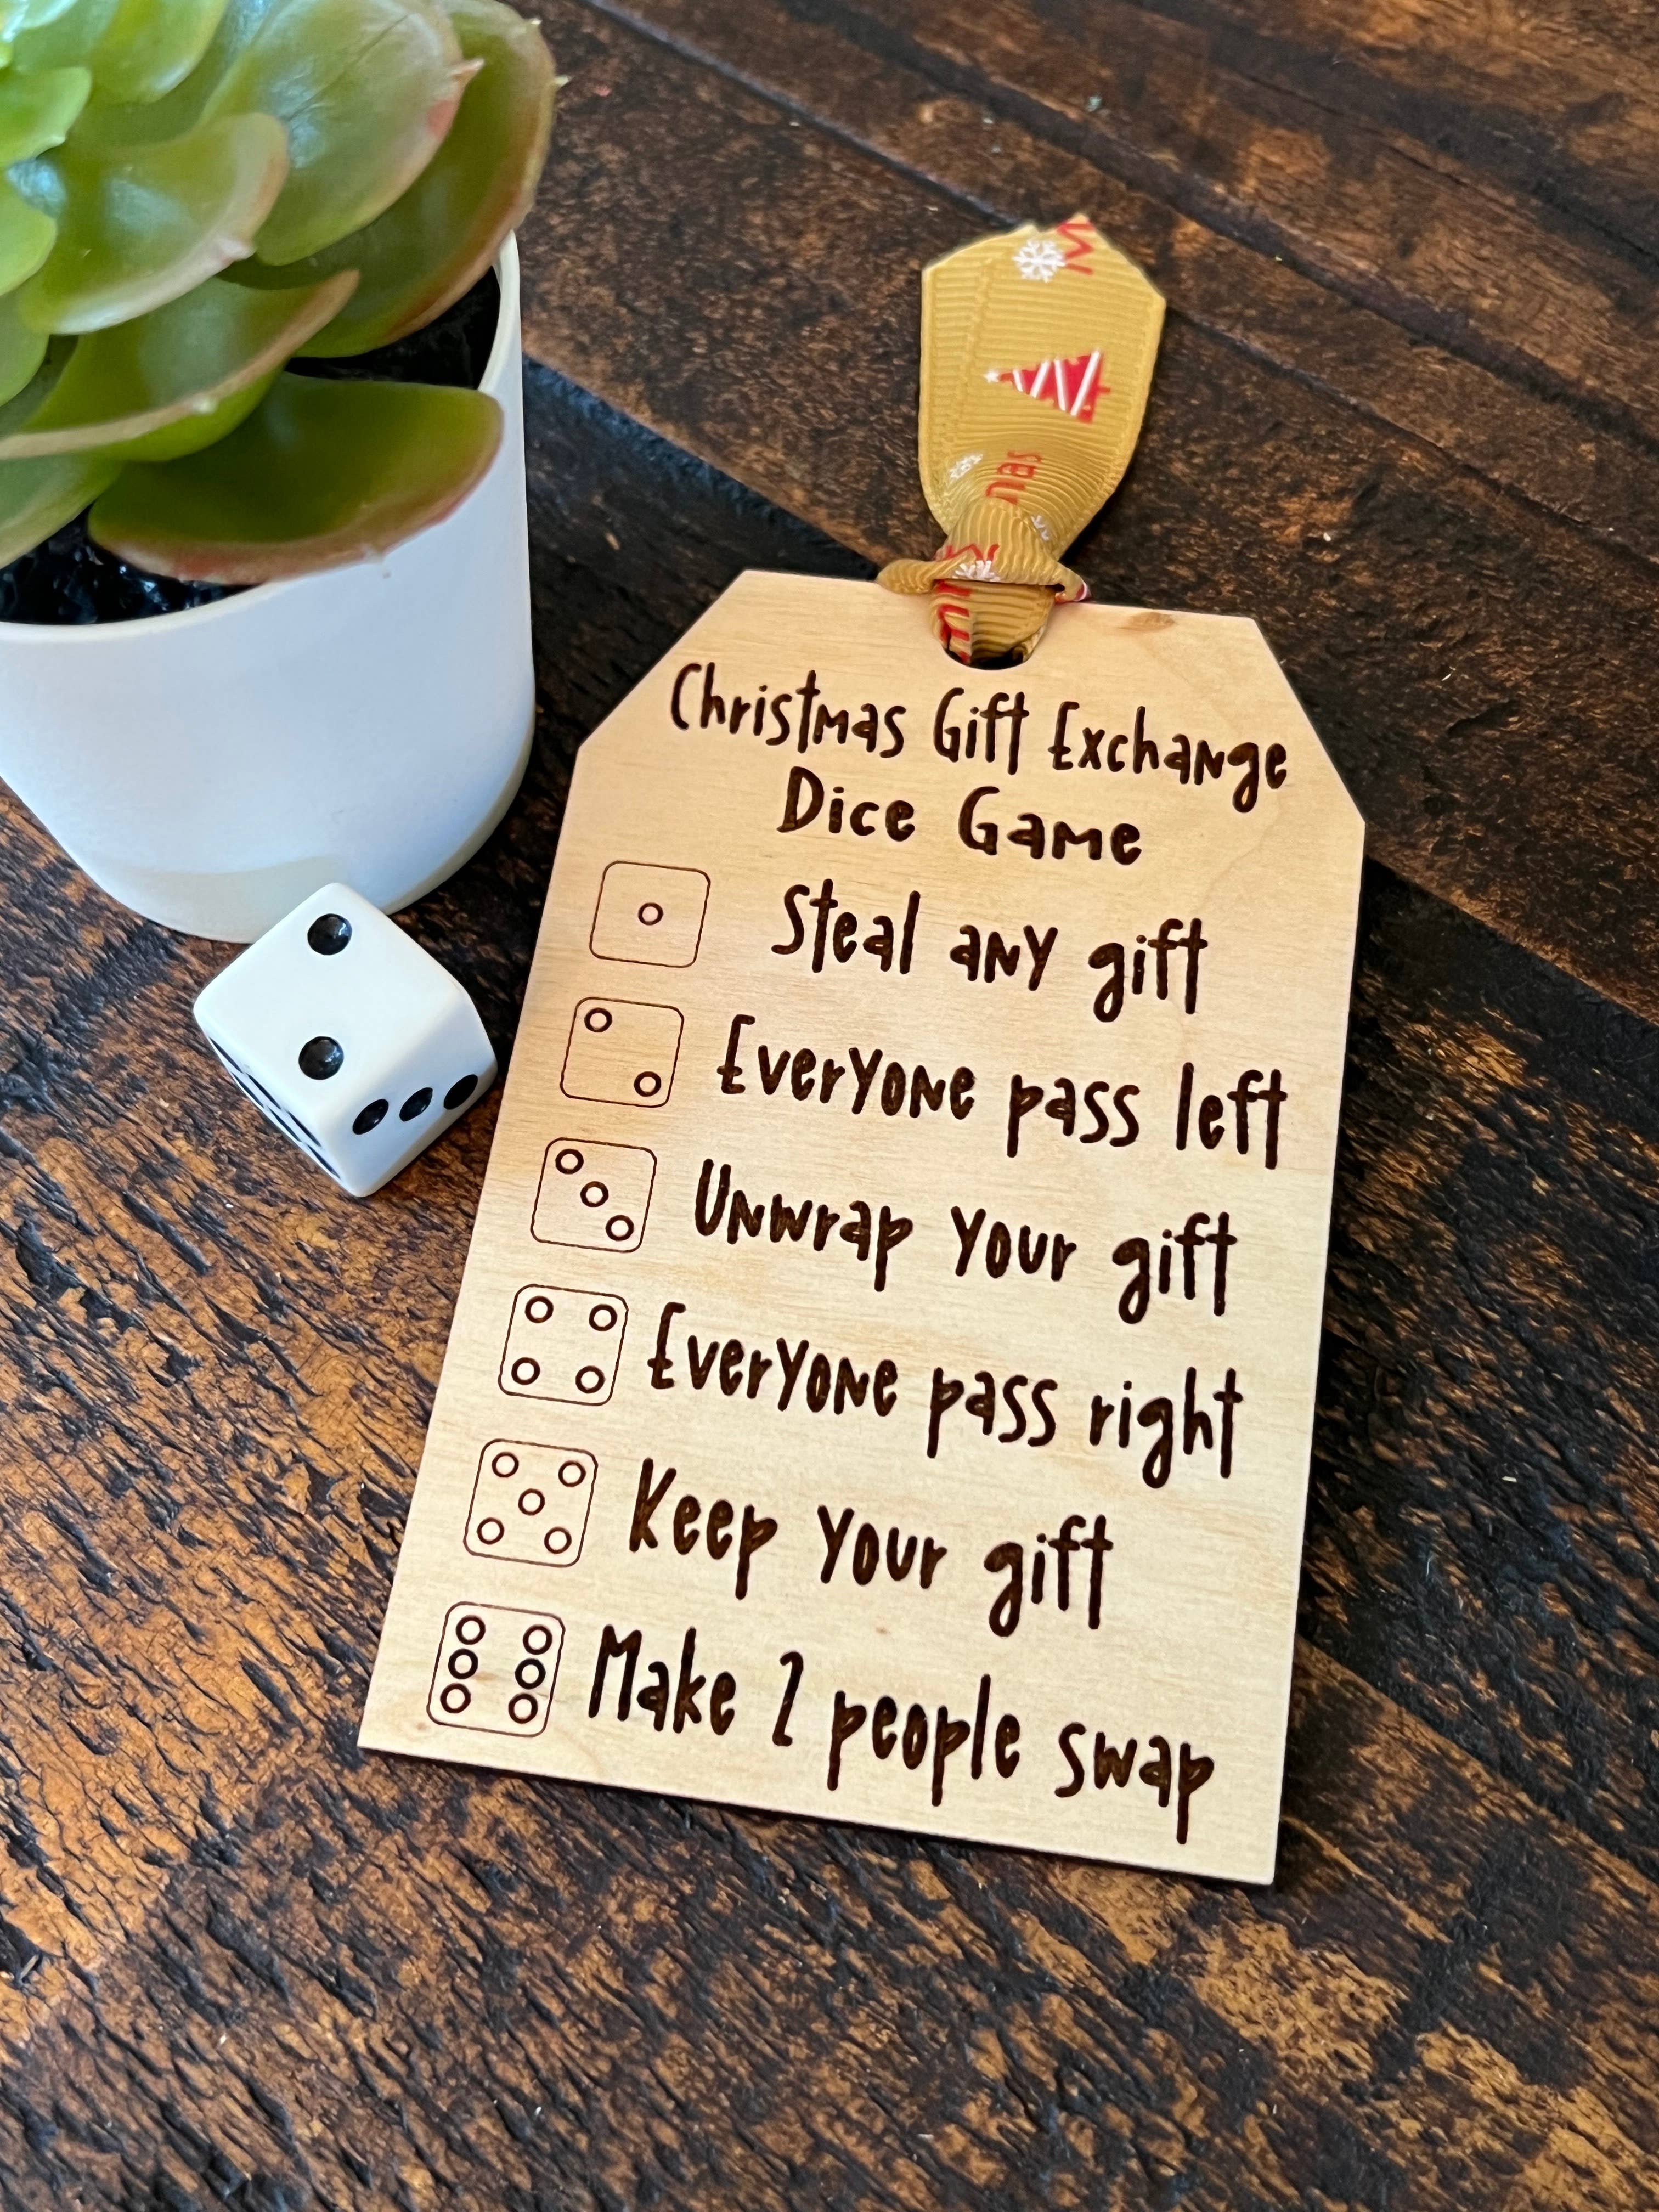 Christmas Gift Exchange
Dice Game
Steal any gift
Everyone pass left
Unwrap your gift
Everyone pass right
Keep your gift
Make 2 people swap